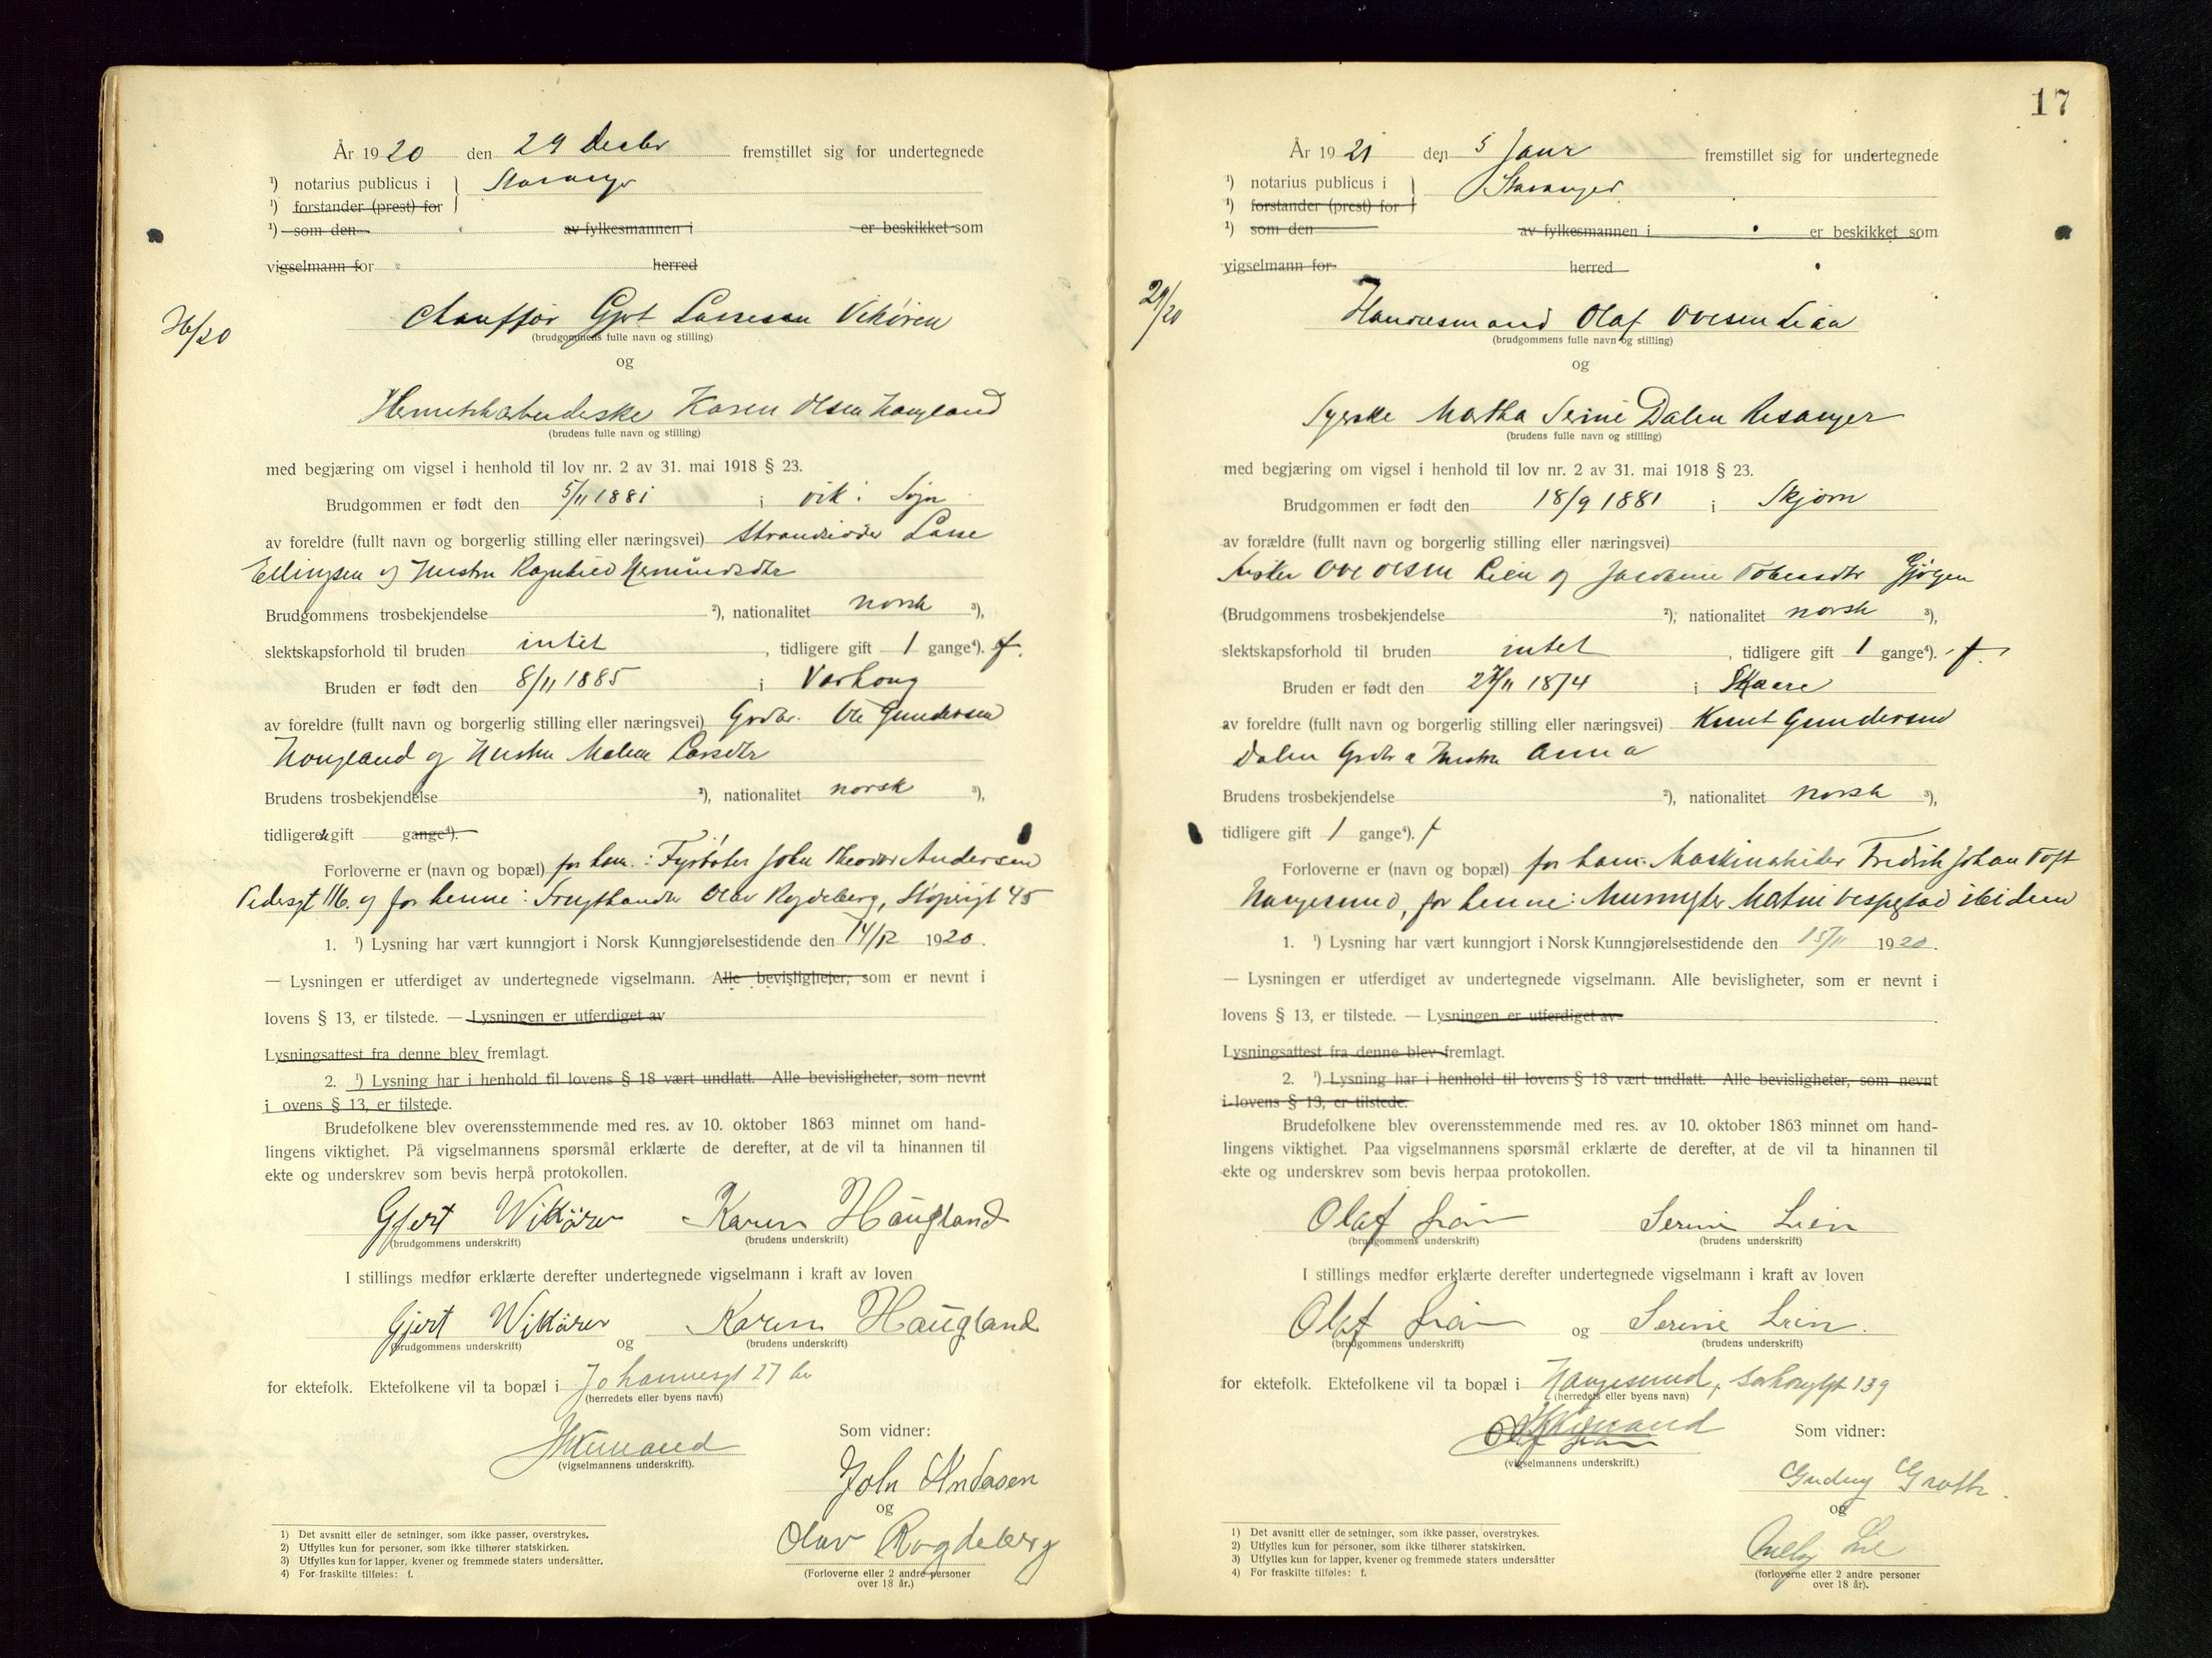 År 1920 den 29 Decbr fremstillet sig for undertegnede
¹) notarius publicus i } Stavanger
¹) forstander (prest) for
¹) som den av fylkesmannen i er beskikket som
vigselmann for herred
36/20
Chauffør Gjert Lassesen Vikøren
(brudgommens fulle navn og stilling)
og
Karen Olsen Haugland
(brudens fulle navn og stilling)
med begjæring om vigsel i henhold til lov nr. 2 av 31. mai 1918 § 23.
Brudgommen er født den 5/11 1881 i Vik i Sogn
av foreldre (fullt navn og borgerlig stilling eller næringsvei) Strandsidder Lasse
Ellingsen og Hustru Ragnhild Hermundsdtr
Brudgommens trosbekjendelse ²), nationalitet norsk ³),
slektskapsforhold til bruden intet , tidligere gift 1 gange⁴). f.
Bruden er født den 8/11 1885 i Varhaug
av foreldre (fullt navn og borgerlig stilling eller næringsvei) Grdbr. Ole Gundersen
Haugland og Hustru Malene Larsdtr
Brudens trosbekjendelse ²), nationalitet norsk ³),
tidligere gift gange⁴).
Forloverne er (navn og bopæl) for ham: Fyrbøter John Theodor Andersen
Pedersgt 116. og for henne: Frugthandler Olav Rogdeberg, Støperigt 45
1. ¹) Lysning har vært kunngjort i Norsk Kunngjørelsestidende den 14/12 1920.
— Lysningen er utferdiget av undertegnede vigselmann. Alle bevisligheter, som er nevnt i
lovens § 13, er tilstede. — Lysningen er utferdiget av
Lysningsattest fra denne blev fremlagt.
2. ¹) Lysning har i henhold til lovens § 18 vært undlatt. Alle bevisligheter, som nevnt
i ovens § 13, er tilstede.
Brudefolkene blev overensstemmende med res. av 10. oktober 1863 minnet om hand-
lingens viktighet. På vigselmannens spørsmål erklærte de derefter, at de vil ta hinannen til
ekte og underskrev som bevis herpå protokollen.
Gjert Wikører Karen Haugland
(brudgommens underskrift) (brudens underskrift)
I stillings medfør erklærte derefter undertegnede vigselmann i kraft av loven
Gjert Wikører og Karen Haugland
(brudgommens underskrift) (brudens underskrift)
for ektefolk. Ektefolkene vil ta bopæl i Johannesgt 27 her
(herredets eller byens navn)
(vigselmannens underskrift).
Som vidner:
John Andersen
og
Olav Rogdeberg
(Forloverne eller 2 andre personer
over 18 år.)
1) Det avsnitt eller de setninger, som ikke passer, overstrykes.
2) Utfylles kun for personer, som ikke tilhører statskirken.
3) Utfylles kun for lapper, kvener og fremmede staters undersåtter.
4) For fraskilte tilføies: f.
17
År 1921 den 5 Januar fremstillet sig for undertegnede
¹) notarius publicus i } Stavanger
¹) forstander (prest) for
¹) som den av fylkesmannen i er beskikket som
vigselmann for herred
29/20
Olaf Ovesen Liaa
(brudgommens fulle navn og stilling)
og
Syerske Martha Serine Dalen Risanger
(brudens fulle navn og stilling)
med begjæring om vigsel i henhold til lov nr. 2 av 31. mai 1918 § 23.
Brudgommen er født den 18/9 1881 i Skjørn
av forældre (fullt navn og borgerlig stilling eller næringsvei)
Fisker Ove Olsen Lien og Tobiasdtr
(Brudgommens trosbekjendelse ²), nationalitet norsk ³),
slektskapsforhold til bruden intet , tidligere gift 1 gange⁴). f.
Bruden er født den 27/11 1874 i Skaare
av foreldre (fullt navn og borgerlig stilling eller næringsvei) Knut Gundersen
Dalen Grdbr & Hustru Anna
Brudens trosbekjendelse ²), nationalitet norsk ³),
tidligere gift 1 gange⁴). f
Forloverne er (navn og bopæl) for ham: Maskinarbeider Fredrik Johan Toft
Haugesund, for henne: Murmester Martin Vespestad ibidem
1. ¹) Lysning har vært kunngjort i Norsk Kunngjørelsestidende den 15/11 1920.
— Lysningen er utferdiget av undertegnede vigselmann. Alle bevisligheter, som er nevnt i
lovens § 13, er tilstede. — Lysningen er utferdiget av
Lysningsattest fra denne blev fremlagt.
2. ¹) Lysning har i henhold til lovens § 18 vært undlatt. Alle bevisligheter, som nevnt
i lovens § 13, er tilstede.
Brudefolkene blev overensstemmende med res. av 10. oktober 1863 minnet om hand-
lingens viktighet. Paa vigselmannens spørsmål erklærte de derefter, at de vil ta hinannen til
ekte og underskrev som bevis herpaa protokollen.
Olaf Liön Serine Lien
(brudgommens underskrift) (brudens underskrift)
I stillings medfør erklærte derefter undertegnede vigselmann i kraft av loven
Olaf Liön og Serine Lien.
(brudgommens underskrift) (brudens underskrift)
for ektefolk. Ektefolkene vil ta bopæl i Haugesund, 139
(herredets eller byens navn)
(vigselmannens underskrift.)
Som vidner:
Gudny Groth.
og
Lie
(forloverne eller 2 andre personer
over 18 år).
1) Det avsnitt eller de setninger, som ikke passer, overstrykes.
2) Utfylles kun for personer, som ikke tilhører statskirken.
3) Utfylles kun for lapper, kvener og fremmede staters undersåtter
4) For fraskilte tilføies: f.